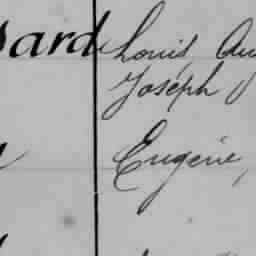 sard Louis, Au
Joseph
Eugène,